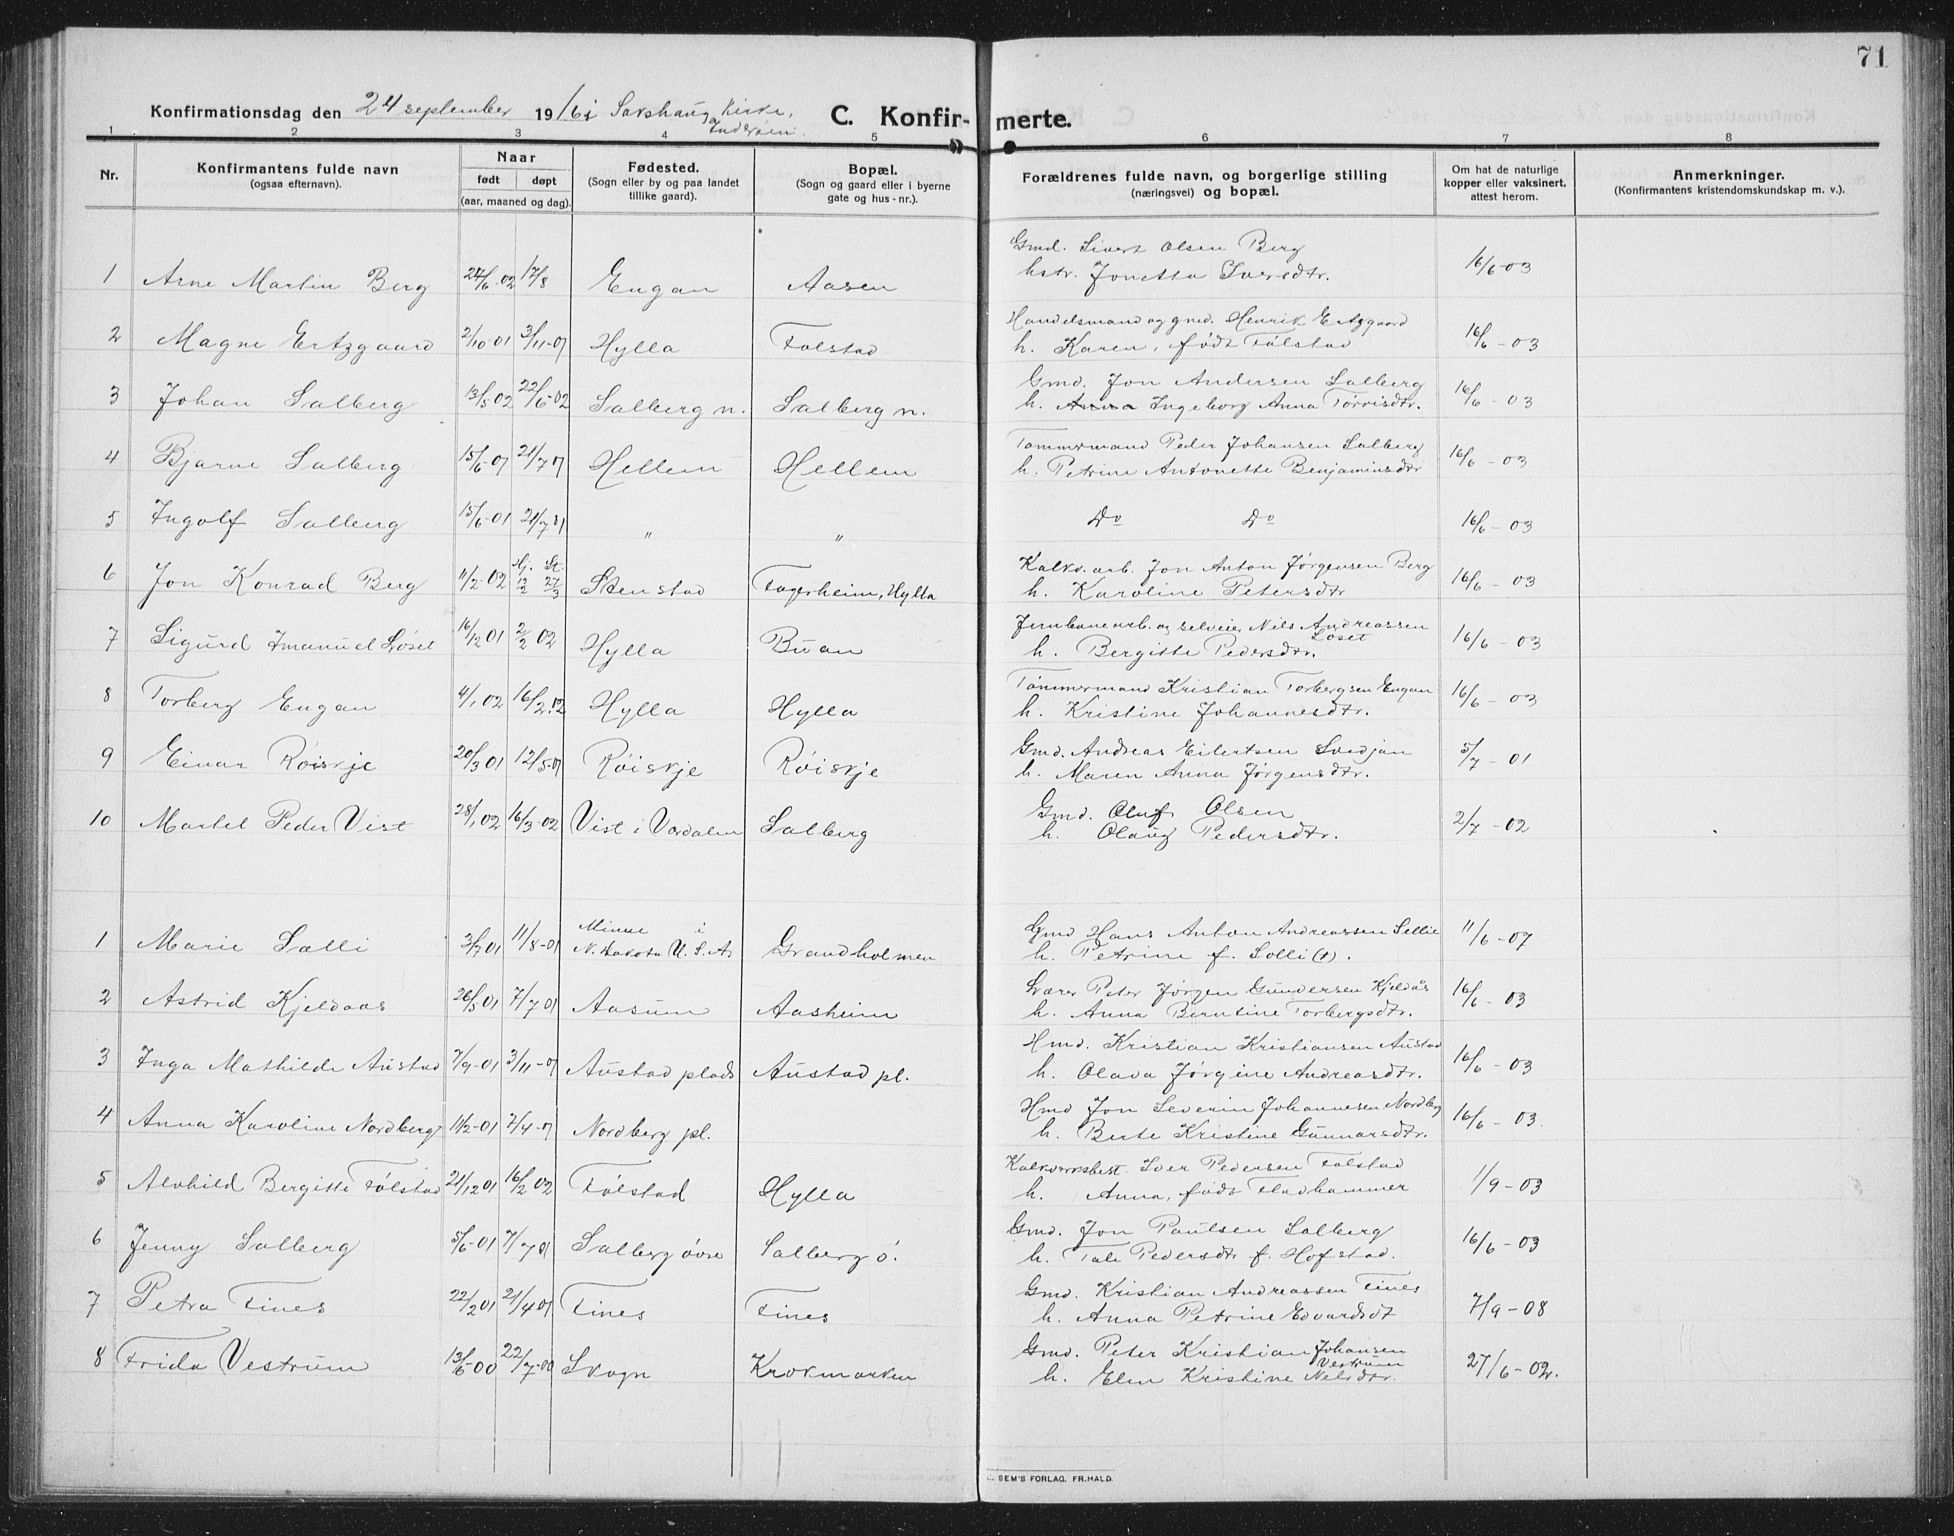 71
Konfirmationsdag den 24 september 1916 i Sakshaug Kirke, Inderøen.
C. Konfirmerte.
1 2 3 4 5 6 7 8
Nr. Konfirmantens fulde navn (ogsaa efternavn). Naar født døpt (aar, maaned og dag). Fødested. (Sogn eller by og paa landet tillike gaard). Bopæl. (Sogn og gaard eller i byerne gate og hus-nr.). Forældrenes fulde navn, og borgerlige stilling (næringsvei) og bopæl. Om hat de naturlige kopper eller vaksinert, attest herom. Anmerkninger. (Konfirmantens kristendomskundskap m. v.).
Gmd. Sivert Olsen Berg
1 Arne Martin Berg 24/6-02 17/8 Engan Aasen hstr. Jonetta Iversdtr. 16/6-03
Handelsmand og gmd. Henrik Ertzgaard
2 Magne Ertzgaard 2/10-01 3/11-01 Hylla Følstad h. Karen, født Følstad 16/6-03
Gmd. Jon Andersen Salberg
3 Johan Salberg 13/5 02 22/6-02 Salberg n. Salberg n. h. Anna Ingeborg Anna Tørrisdtr. 16/6-03
Tømmermand Peder Johansen Salberg
4 Bjarne Salberg 15/6-01 21/7 01 Hellem Hellem h. Petrine Antonette Benjaminsdtr 16/6-03
5 Ingolf Salberg 15/6-01 21/7 01 " " Do Do 16/6-03
Kalkv. arb. Jon Anton Jørgensen Berg
6 Jon Konrad Berg 11/2-02 Hj. 12/2 St. 27/3 Stenstad Fagerheim, Hylla h. Karoline Petersdtr 16/6-03
Jernbanearb. og selveier Nils Andreassen Løset
7 Sigurd Imanuel Løset 16/12 01 2/2 02 Hylla Buan h. Bergitte Pedersdtr. 16/6-03
Tømmermand Kristian Torbergsen Engan
8 Torberg Engan 4/1 02 16/2 02 Hylla Hylla h. Kristine Johannesdtr. 16/6-03
Gmd. Andreas Eilertsen Svedjan
9 Einar Røiskje 20/3 01 12/5-01 Røiskje Røiskje h. Maren Anna Jørgensdtr. 5/7-01
Gmd. Oluf Olsen
10 Martel Peder Vist 28/1 02 16/3-02 Vist i Værdalen Salberg h. Olaug Pedersdtr. 2/7-02
Gmd Hans Anton Andreassen Sellie
1 Marie Sælli 3/7 01 11/8-01 N. Dakota U.S.A. Grandholmen h. Petrine f. Solli (†). 11/6-07
Lærer Peter Jørgen Gundersen Kjeldås
2 Astrid Kjeldaas 26/5 01 7/7 01 Aasum Aasheim h. Anna Berntine Torbergsdtr. 16/6-03
Hmd. Kristian Kristiansen Austad
3 Inga Mathilde Austad 7/9-01 3/11-01 Austad plads Austad pl. h. Olava Jørgine Andreasdtr. 16/6-03
Hmd Jon Severin Johannesen Nordberg
4 Anna Karoline Nordberg 11/2-01 7/4-01 Nordberg pl. h. Berte Kristine Gunnarsdtr. 16/6-03.
Kalkverksbest. Iver Pedersen Følstad
5 Alvhild Bergitte Følstad 21/12 01 16/2 02 Følstad Hylla h. Anna, født Fladhammer 1/9-03
Gmd. Jon Paulsen Salberg
6 Jenny Salberg 5/6-01 7/7 01 Salberg øvre Salberg ø. h. Tale Pedersdtr f. Hofstad. 16/6-03
Gmd. Kristian Andreassen Fines
7 Petra Fines 22/2 01 21/4 01 Fines Fines h. Anna Petrine Edvardsdt 7/9-08
Gmd. Peter Kristian Johansen Vestrum
8 Frida Vestrum 13/6-00 22/7-00 Skogn Krokmarken h. Elen Kristine Nelsdtr. 27/6-02.
SEM'S FORLAG, FR.HALD.